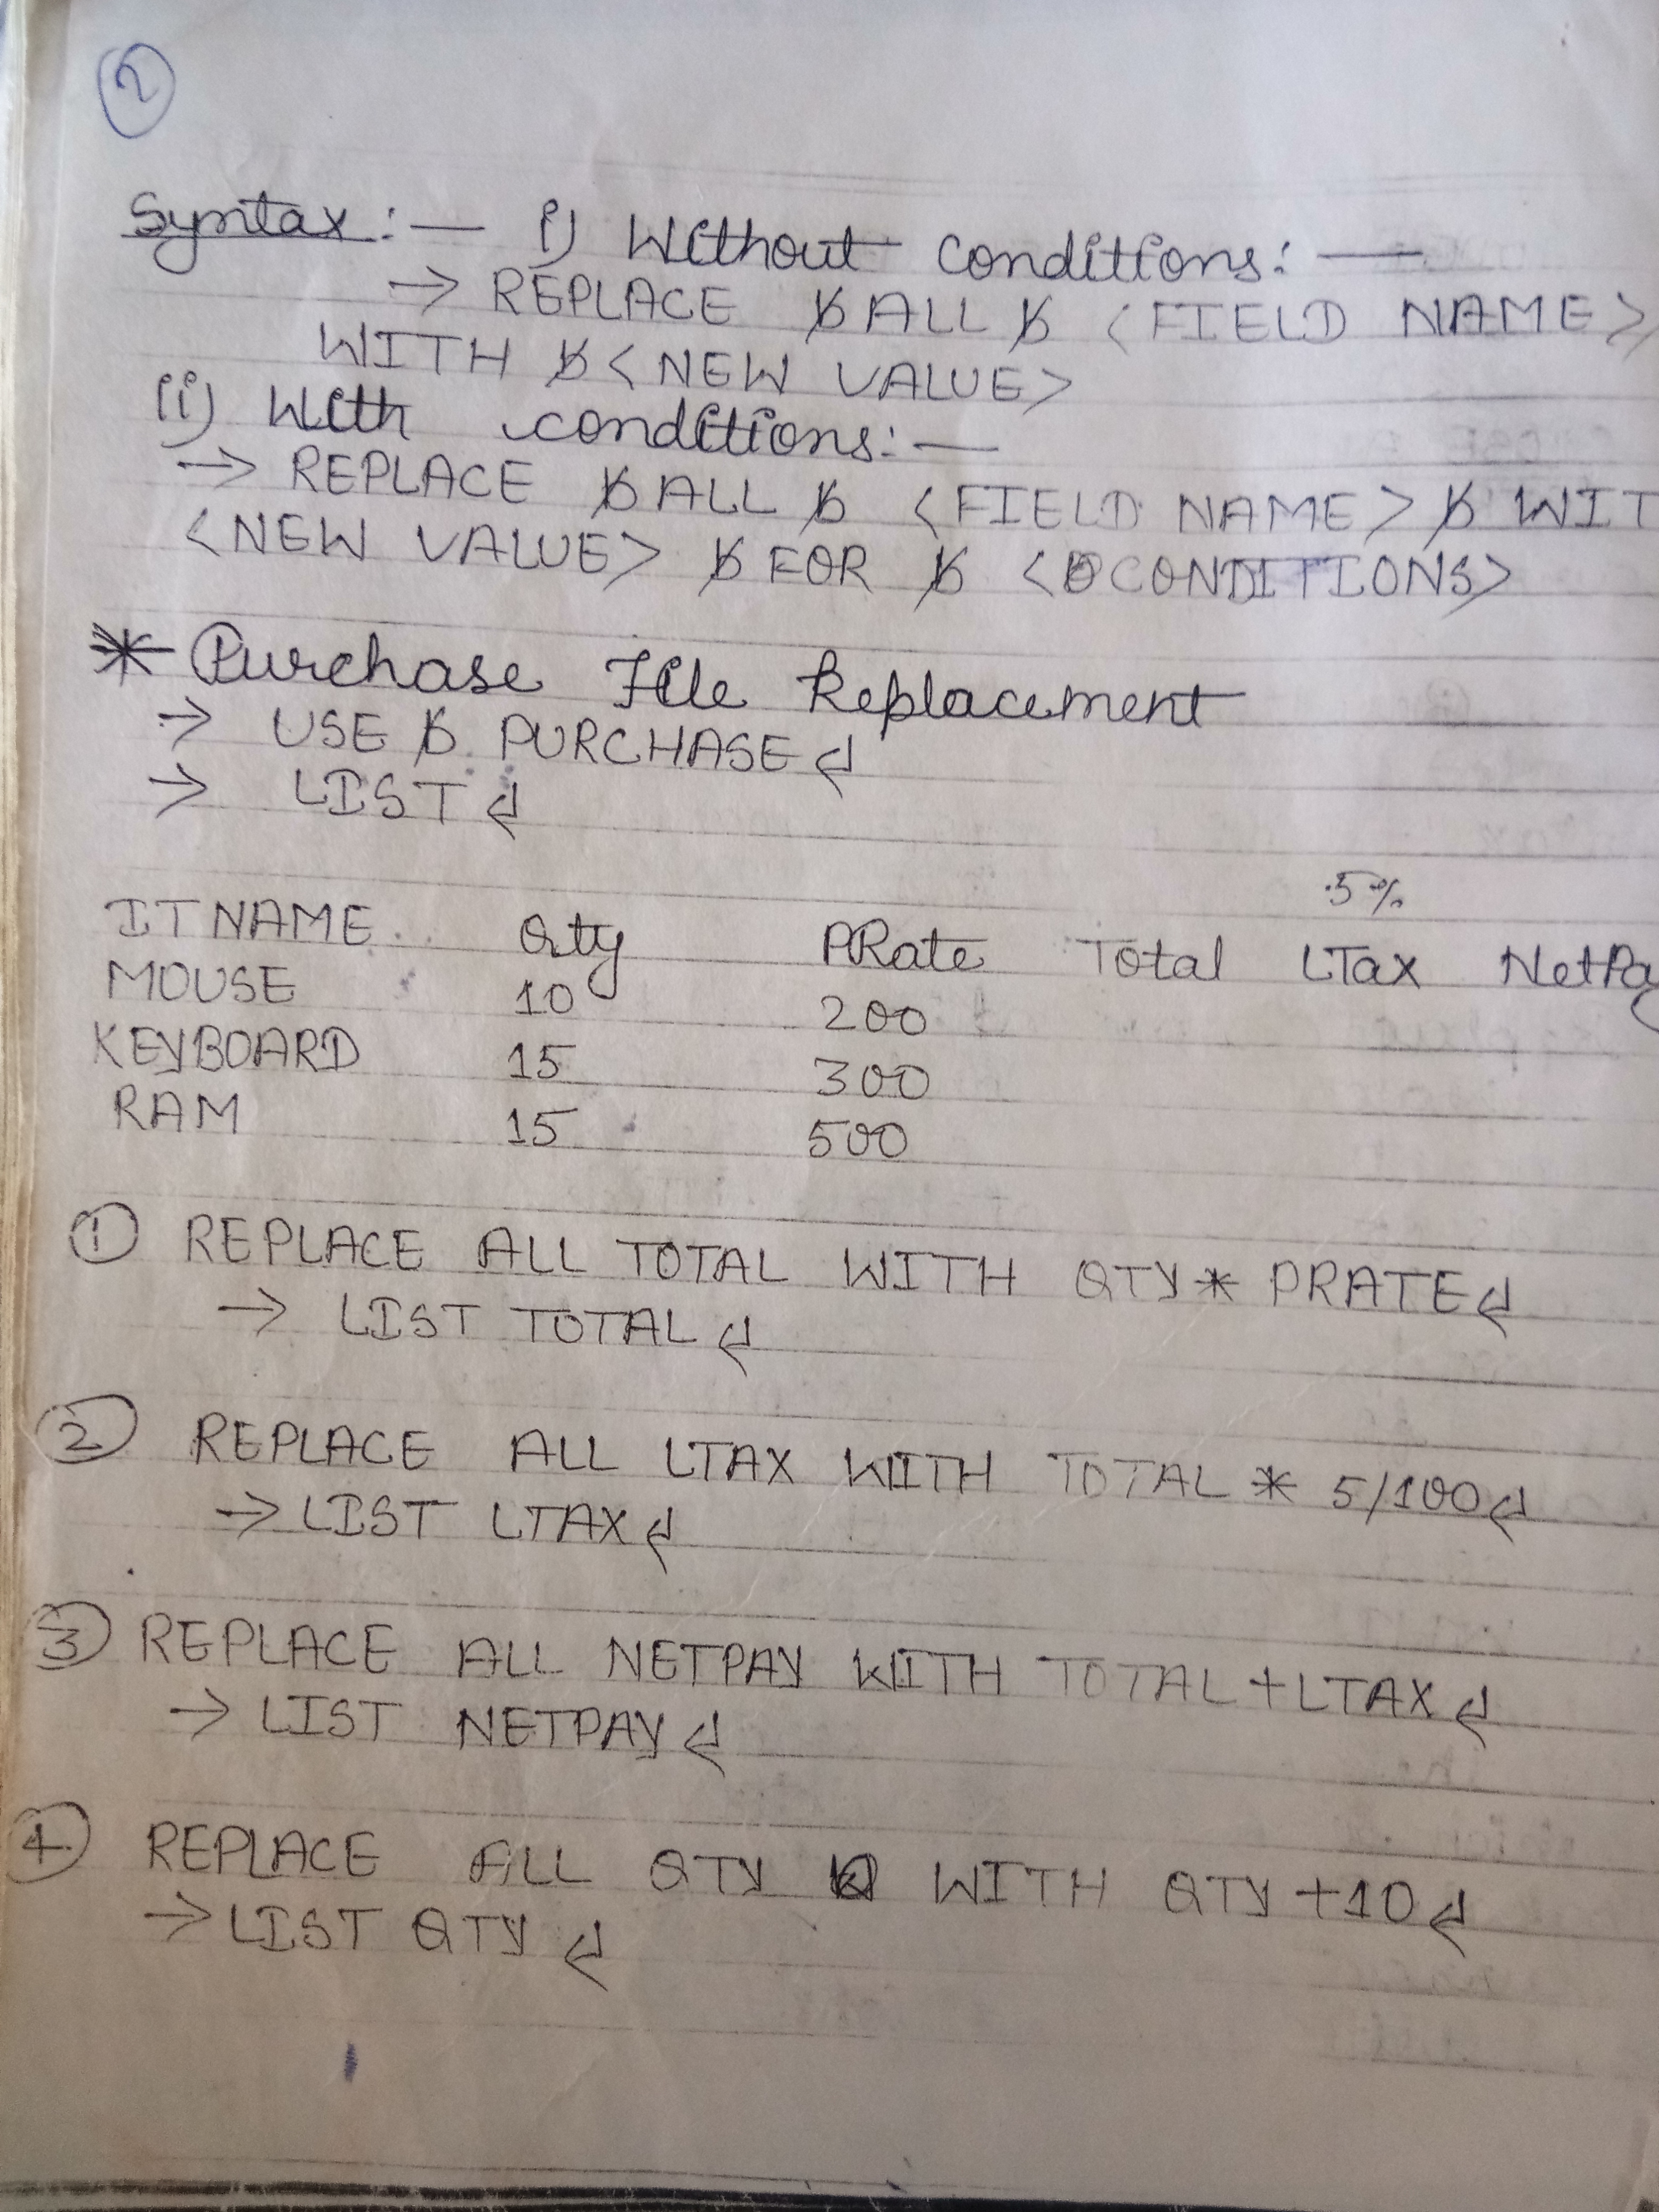 2
Syntax:— i) Without conditions:—
→ REPLACE ␢ ALL ␢ <FIELD NAME>
WITH ␢ <NEW VALUE>
(ii) With conditions:—
→ REPLACE ␢ ALL ␢ <FIELD NAME> ␢ WIT
<NEW VALUE> ␢ FOR ␢ <CONDITIONS>
* Purchase File Replacement
→ USE ␢ PURCHASE ↲
→ LIST ↲
5%
ITNAME Qty PRate Total LTax NetPay
MOUSE 10 200
KEYBOARD 15 300
RAM 15 500
① REPLACE ALL TOTAL WITH QTY * PRATE ↲
→ LIST TOTAL ↲
② REPLACE ALL LTAX WITH TOTAL * 5/100 ↲
→ LIST LTAX ↲
③ REPLACE ALL NETPAY WITH TOTAL + LTAX ↲
→ LIST NETPAY ↲
④ REPLACE ALL QTY WITH QTY + 10 ↲
→ LIST QTY ↲